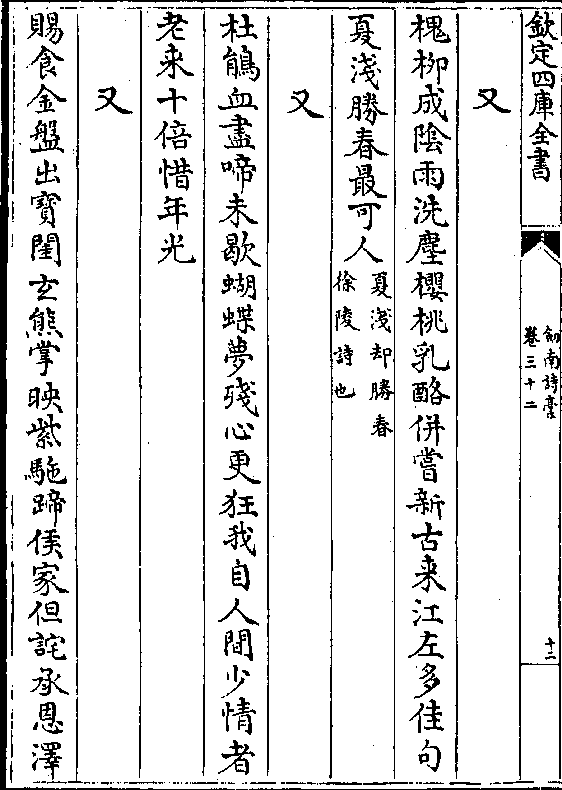 欽定四庫全書
劔南詩藁
卷三十二
十二
又
槐柳成陰雨洗塵櫻桃乳酪併嘗新古来江左多佳句
夏淺勝春最可人夏淺却勝春
徐陵詩也
又
杜鵑血盡啼未歇蝴蝶夢殘心更狂我自人間少情者
老来十倍惜年光
又
賜食金盤出寳閨玄熊掌映紫駞蹄侯家但詫承恩澤